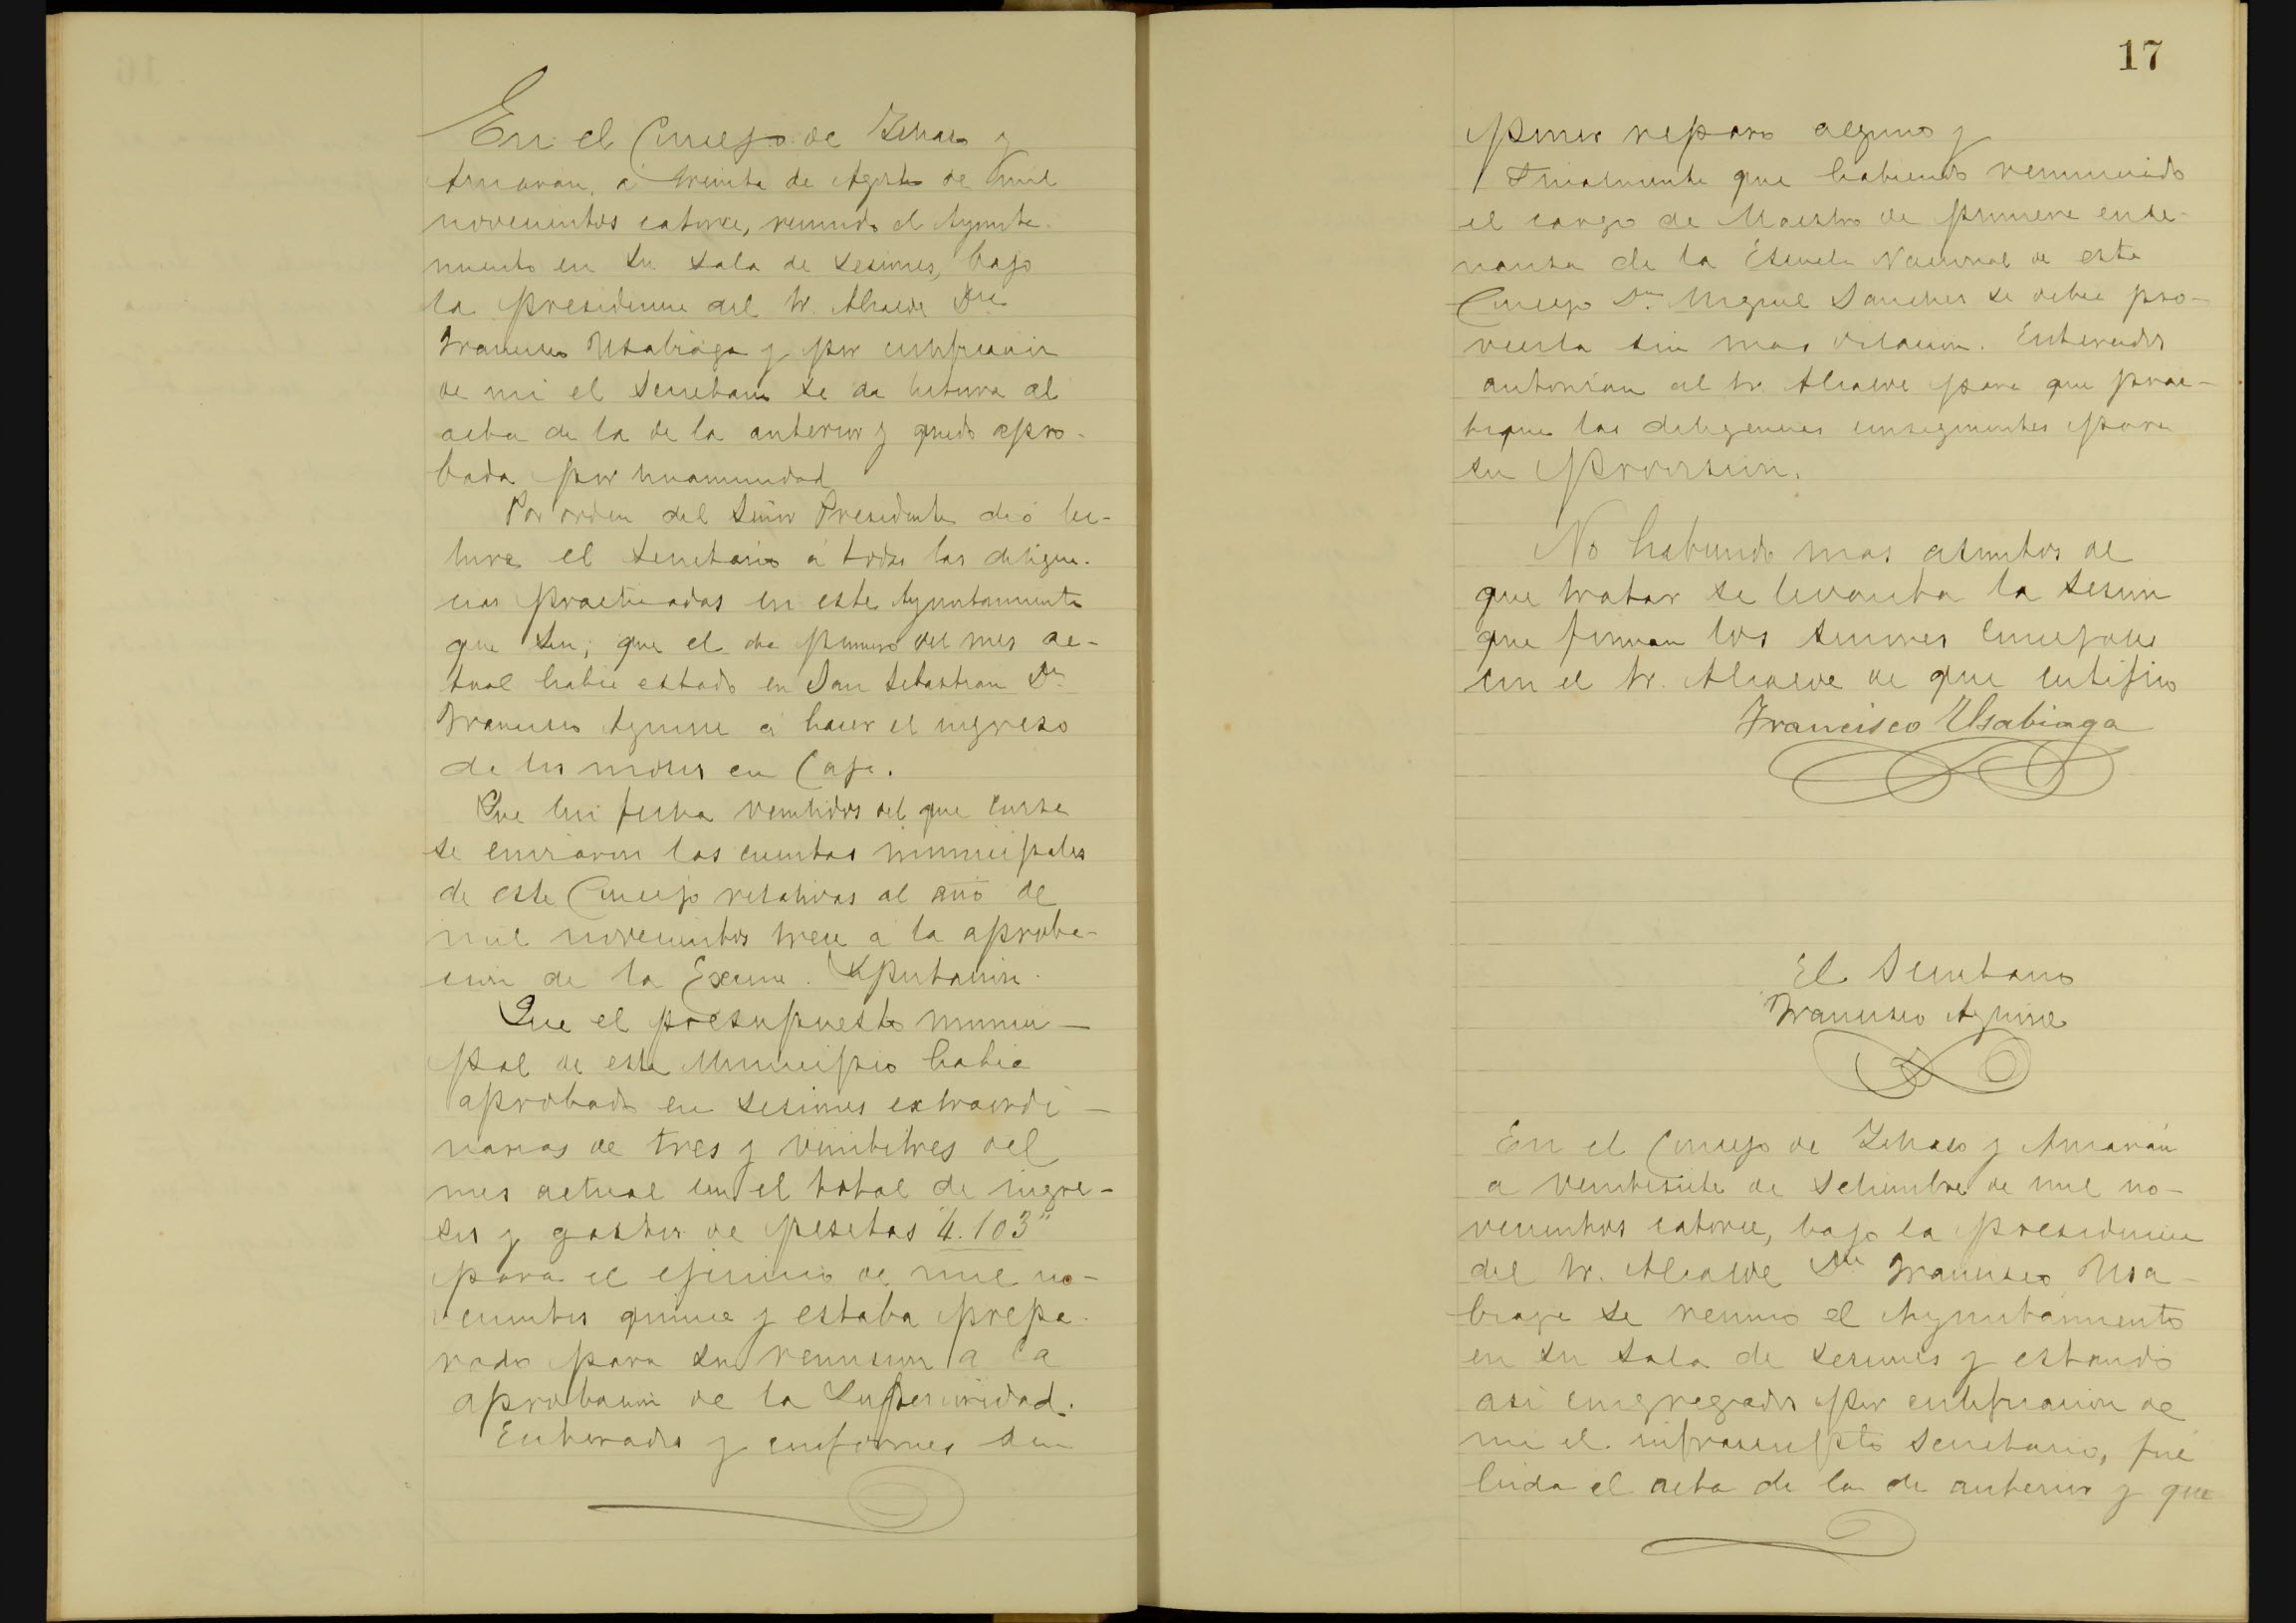 En el Concejo de Zihaco y
Amaran, a treinta de Agosto de mil
novecientos catorce, reunido el Ayunta-
miento en su sala de sesiones, bajo
la presidencia del Sr. Alcalde Dn
Francisco Usabiaga y por certificación
de mi el Secretario se da lectura al
acta de la de la anterior y quedo apro-
bada por unanimidad
Por orden del Señor Presidente dió lec-
tura el Secretario á todas las diligen-
cias practicadas en este Ayuntamiento
que son; que el dia primero del mes ac-
tual habia estado en San Sebastian Dn
Francisco Aguirre a hacer el ingreso
de los mozos en Caja.
Que con fecha veintidos del que cursa
se enviaron las cuentas municipales
de este Concejo relativas al año de
mil novecientos trece a la aproba-
cion de la Excma. Diputacion.
Que el presupuesto munici-
pal de este Municipio habia
aprobado en sesiones extraordi-
narias de tres y veintitres del
mes actual con el total de ingre-
sos y gastos de pesetas "4.103"
para el ejercicio de mil no-
vecientos quince y estaba prepa-
rado para su remision a la
aprobacion de la Superioridad.
Enterados y conformes sin
17
poner reparo alguno y
Finalmente que habiendo renunciado
el cargo de Maestro de primera ense-
nansa de la Escuela Nacional de este
Concejo Dn Miguel Sanches se debe pro-
veerla sin mas dilacion. Enterados
autorizan al Sr. Alcalde para que prac-
tique las diligencias consiguientes para
su provision.
No habiendo mas asuntos de
que tratar se levanta la sesion
que firman los senores Concejales
con el Sr. Alcalde de que certifico
Francisco Usabiaga
El Secretario
Francisco Aguirre
En el Concejo de Zihaco y Amarán
a veintisiete de Setiembre de mil no-
vecientos catorce, bajo la presidencia
del Sr. Alcalde Dn Francisco Usa-
biaga se reunio el Ayuntamiento
en su sala de sesiones y estando
asi congregados por certificacion de
mi el infrascripto Secretario, fué
leida el acta de la de anterior y que